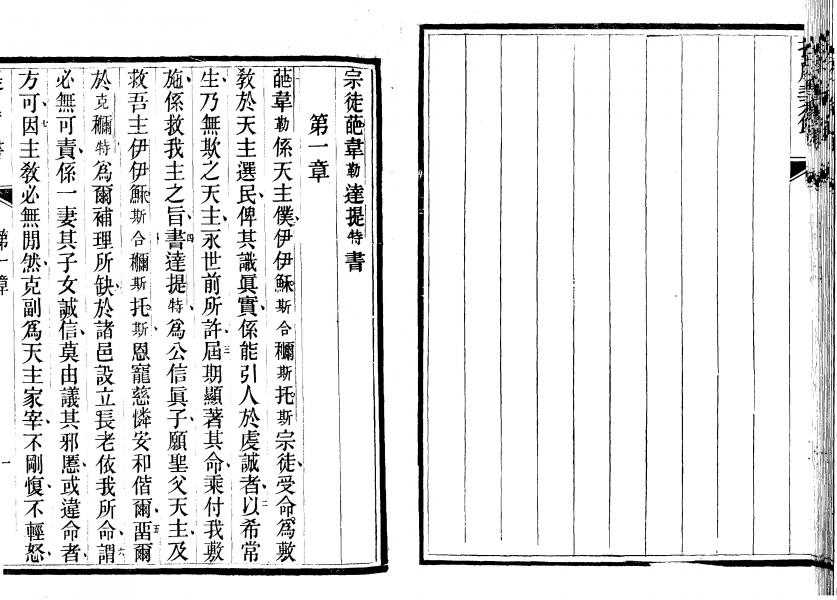 宗徒葩韋勒達提特書
第一章
葩韋勒係天主僕、伊伊穌斯合穪斯托斯宗徒、受命爲敷
敎於天主選民、俾其識眞實、係能引人於虔誠者、二以希常
生、乃無欺之天主、永世前所許、三屆期顯著其命、乘付我敷
施、係救我主之旨、四書達提特、爲公信眞子、願聖父天主、及
救吾主伊伊穌斯合穪斯托斯、恩寵慈憐安和偕爾、五畱爾
於克穪特、爲爾補理所缺、於諸邑設立長老、依我所命、六謂
必無可責、係一妻、其子女誠信、莫由議其邪慝、或違命者、
方可、七因主敎必無閒然、克副爲天主家宰、不剛愎、不輕怒、
第一章
一